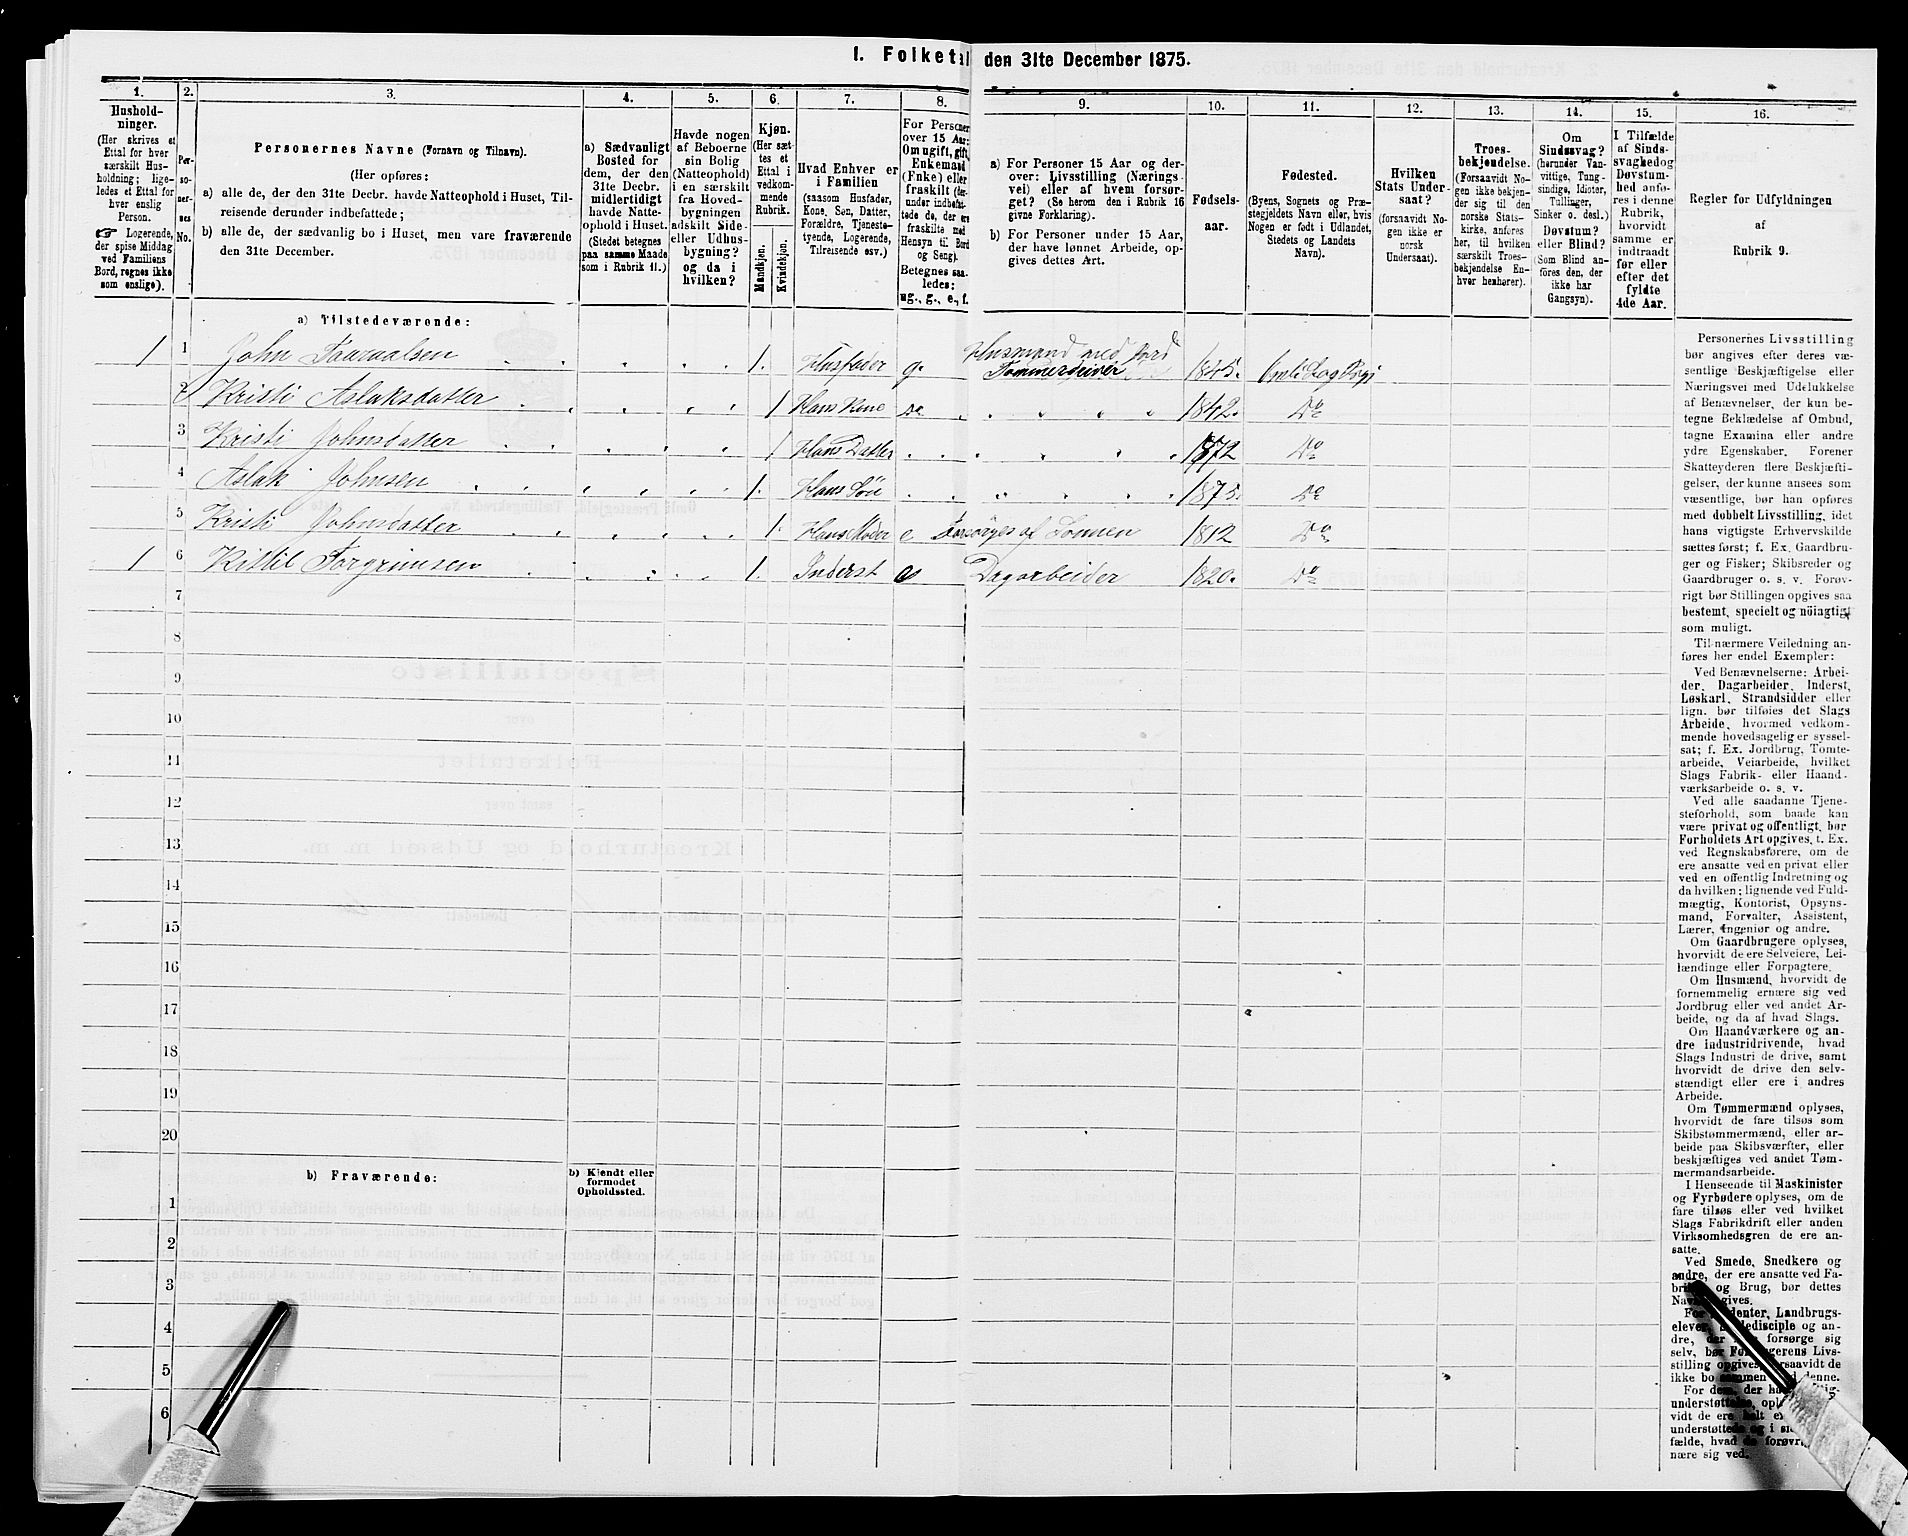 1. Folketal den 31te December 1875.
1. 2. 3. 4. 5. 6. 7. 8. 9. 10. 11. 12. 13. 14. 15. 16.
Hushold-
ninger.
(Her skrives et
Ettal for hver
særskilt Hus-
holdning; lige-
ledes et Ettal for
hver enslig
Person.
☞ Logerende,
der spise Middag
ved Familiens
Bord, regnes ikke
som enslige).
Per-
so-
ner-
nes
No.
Personernes Navne (Fornavn og Tilnavn).
(Her opføres:
a) alle de, der den 31te Decbr. havde Natteophold i Huset, Til-
reisende derunder indbefattede;
b) alle de, der sædvanlig bo i Huset, men vare fraværende
den 31te December.
a) Sædvanligt
Bosted for
dem, der den
31te Decbr.
midlertidigt
havde Natte-
ophold i Huset.
(Stedet betegnes
paa samme Maade
som i Rubrik 11.)
Havde nogen
af Beboerne
sin Bolig
(Natteophold)
i en særskilt
fra Hoved-
bygningen
adskilt Side-
eller Udhus-
bygning?
og da i
hvilken?
Kjøn.
(Her sæt-
tes et
Ettal i
vedkom-
mende
Rubrik.
Mandkjøn.
Kvindekjøn.
Hvad Enhver er
i Familien
(saasom Husfader,
Kone, Søn, Datter,
Forældre, Tjeneste-
tyende, Logerende,
Tilreisende osv.)
For Personer
over 15 Aar:
Om ugift, gift,
Enkemand
(Enke) eller
fraskilt (der-
under indbefat-
tede de, der ere
fraskilte med
Hensyn til Bord
og Seng).
Betegnes saa-
ledes:
ug., g., e., f.
a) For Personer 15 Aar og der-
over: Livsstilling (Nærings-
vei) eller af hvem forsør-
get? (Se herom den i Rubrik 16
givne Forklaring).
b) For Personer under 15 Aar,
der have lønnet Arbeide, op-
gives dettes Art.
Fødsels-
aar.
Fødested.
(Byens, Sognets og Præ-
stegjeldets Navn eller, hvis
Nogen er født i Udlandet,
Stedets og Landets
Navn).
Hvilken
Stats Under-
saat?
(forsaavidt No-
gen ikke er
norsk
Undersaat).
Troes-
bekjendelse.
(Forsaavidt No-
gen ikke bekjen-
der sig til den
norske Stats-
kirke, anføres
her, til hvilken
særskilt Troes-
bekjendelse En-
hver henhører).
Om
Sindssvag?
(herunder Van-
vittige, Tung-
sindige, Idioter,
Tullinger,
Sinker o. desl.)
Døvstum?
eller Blind?
(Som Blind an-
føres den, der
ikke har
Gangsyn).
I Tilfælde
af Sinds-
svaghed og
Døvstum-
hed anfø-
res i denne
Rubrik,
hvorvidt
samme er
indtraadt
før eller
efter det
fyldte
4de Aar.
Regler for Udfyldningen
af
Rubrik 9.
a) Tilstedeværende:
1 1 John Taaraalsen 1. Husfader g. Husmand med Jord
Tømmerdriver 1845.
2 Kristi Aslaksdatter 1 Hans Kone Do 1842. Do
3 Kristi Johnsdatter 1 Hans Datter 1872 Do
4 Aslak Johnsen 1. Hans Søn 1875. Do
5 Kristi Johnsdatter 1. Hans Moder e Forsørges af Sønnen 1812 Do
1 6 Kittil Torgrimsen 1. Inderst e Dagarbeider 1820. Do
7
8
9
10
11
12
13
14
15
16
17
18
19
20
b) Fraværende:
b) Kjendt eller
formodet
Opholdssted.
1
2
3
4
5
6
Personernes Livsstilling
bør angives efter deres væ-
sentlige Beskjæftigelse eller
Næringsvei med Udelukkelse
af Benævnelser, der kun be-
tegne Beklædelse af Ombud,
tagne Examina eller andre
ydre Egenskaber. Forener
Skatteyderen flere Beskjæfti-
gelser, der kunne ansees som
væsentlige, bør han opføres
med dobbelt Livsstilling, idet
hans vigtigste Erhvervskilde
sættes først; f. Ex. Gaardbru-
ger og Fisker; Skibsreder og
Gaardbruger o. s. v. Forøv-
rigt bør Stillingen opgives saa
bestemt, specielt og nöiagtigt
som muligt.
Til nærmere Veiledning an-
føres her endel Exempler:
Ved Benævnelserne: Arbei-
der, Dagarbeider, Inderst,
Løskarl, Strandsidder eller
lign. bør tilføies det Slags
Arbeide, hvormed vedkom-
mende hovedsagelig er syssel-
sat; f. Ex. Jordbrug, Tomte-
arbeide, Veiarbeide, hvilket
Slags Fabrik- eller Haand-
værksarbeide o. s. v.
Ved alle saadanne Tjene-
steforhold, som baade kan
være privat og offentligt, bør
Forholdets Art opgives, t. Ex.
ved Regnskabsførere, om de
ere ansatte ved en privat eller
ved en offentlig Indretning og
da hvilken; lignende ved Fuld-
mægtig, Kontorist, Opsyns-
mand, Forvalter, Assistent,
Lærer, Ingeniør og andre.
Om Gaardbrugere oplyses,
hvorvidt de ere Selveiere, Lei-
lændinge eller Forpagtere.
Om Husmænd, hvorvidt de
fornemmelig ernære sig ved
Jordbrug eller ved andet Ar-
beide, og da af hvad Slags.
Om Haandværkere og an-
dre industridrivende, hvad
Slags Industri de drive, samt
hvorvidt de drive den selv-
stændigt eller ere i andres
Arbeide.
Om Tømmermænd oplyses,
hvorvidt de fare tilsøs som
Skibstømmermænd, eller ar-
beide paa Skibsværfter, eller
beskjæftiges ved andet Tøm-
mermandsarbeide.
I Henseende til Maskinister
og Fyrbødere oplyses, om de
fare tilsøs eller ved hvilket
Slags Fabrikdrift eller anden
Virksomhedsgren de ere an-
satte.
Ved Smede, Snedkere og
andre, der ere ansatte ved Fa-
og Brug, bør dettes
gives.
Landbrugs-
og an-
dre, forsørge sig
selv, bør Livs-
stilling opgives, forsaavidt de
ikke bo sammen denne.
For
understøttelse,
vidt de ere
understøttede og i
fælde, hvad de
nære sig ved.